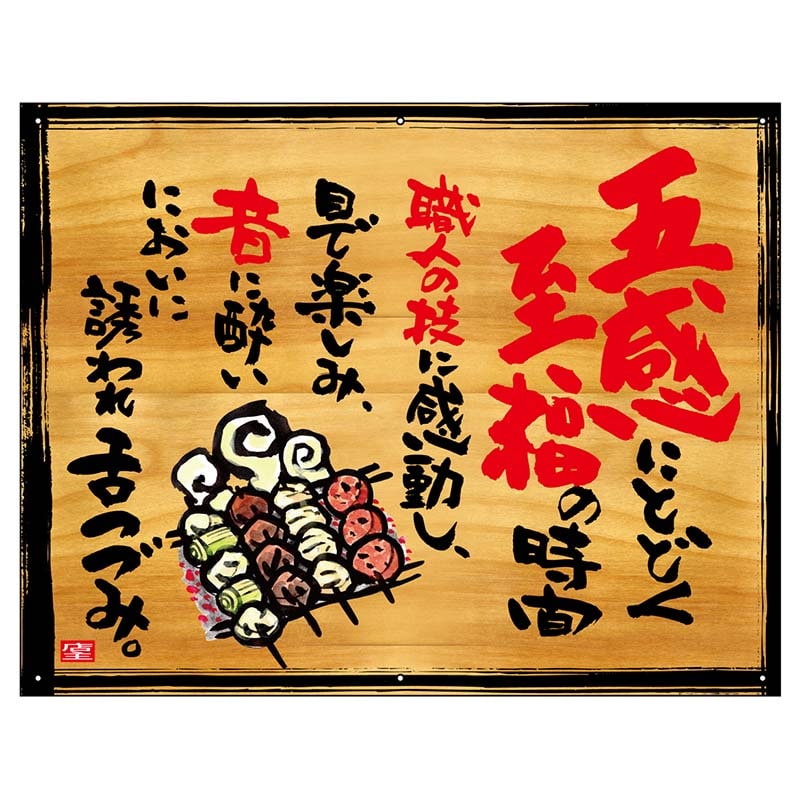 五感にとどく
至福の時間
職人の技に感動し、
目で楽しみ、
音に酔い
においに
誘われ
舌つづみ。
店主